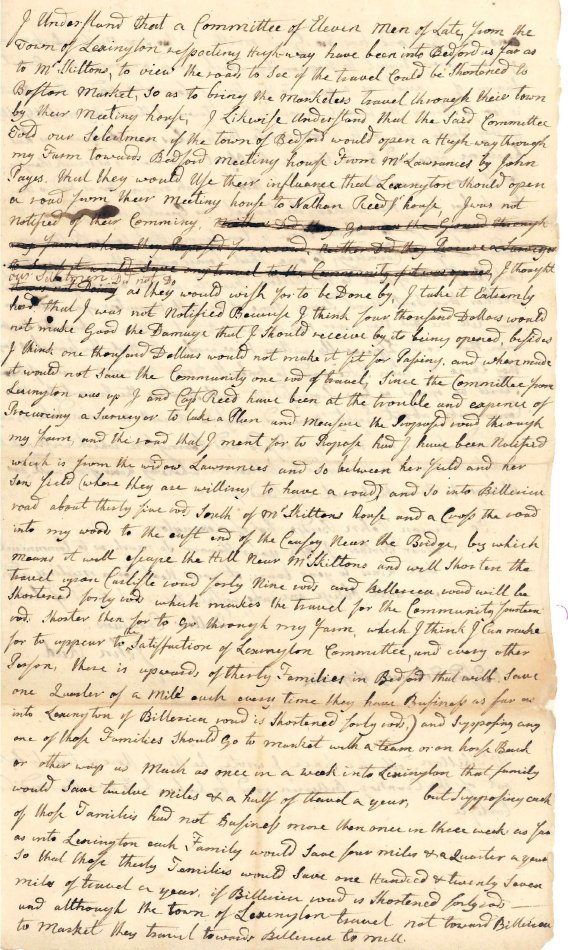 I Understand that a Committee of Eleven men of Late, from the
Town of Lexington respecting High-way have been into Bedford as far as
to Mr Skiltons, to view the road to See if the travel Could be Shortened to
Boston Market, So as to bring the Marketers travel through their town
by their Meeting house, I Likewise Understand that the Said Committee
Told our Selectmen if the town of Bedford would open a High-way through
my Farm towards Bedford meeting house From Mr Lawrances by John
Pages, that they would Use their influence that Lexington Should open
a road from their Meeting house to Nathan Reed's house, I was not
Notified of their Comming, I thought
our Selectmen Did not Do
as they would wish for to be Done by, I take it Extremly
hard that I was not Notified Because I think four thousand Dollars would
not make Good the Damage that I Should receive by its being opened, besides
I think one thousand Dollars would not make it fit for Passing, and when made
it would not Save the Community one rod of travel, Since the Committee from
Lexington was up I and Capt Reed have been at the trouble and expence of
Procuring a Surveyor to take a Plan and measure the Proposed road through
my farm, and the road that I ment for to Propose had I have been Notified
which is from the widow Lawrances and So between her field and her
Son field (where they are willing to have a road) and So into Billerica
road about therty five rod South of Mr Skiltons house and a Cross the road
into my woods to the east end of the Causey Near the Bridge, by which
means it will escape the Hill Near Mr Skiltons and will Shorten the
travel upon Carlisle road forty Nine rods and Billerica road will be
Shortened forty rods which makes the travel for the Community fourteen
rods Shorter then for to Go through my Farm, which I think I Can make
for to appear to the Satisfaction of Lexington Committee, and every other
Person, there is upwards of therty Families in Bedford that will Save
one Quarter of a Mile each every time they have Business as far as
into Lexington if Billerica road is Shortened forty rods,) and Supposing any
one of those Families Should Go to market with a team or on horse Back
or other ways as Much as once in a week into Lexington that family
would Save twelve miles & a half of travel a year, but Supposing each
of those Families had not Business more then once in three week as far
as into Lexington each Family would Save four miles & a Quarter a year
So that those therty Families would Save one Hundred & twenty Seven
miles of travel a year, if Billerica road is Shortened forty rods
and although the town of Lexington travel not toward Billerica
to Market they travel towards Billerica to mill.